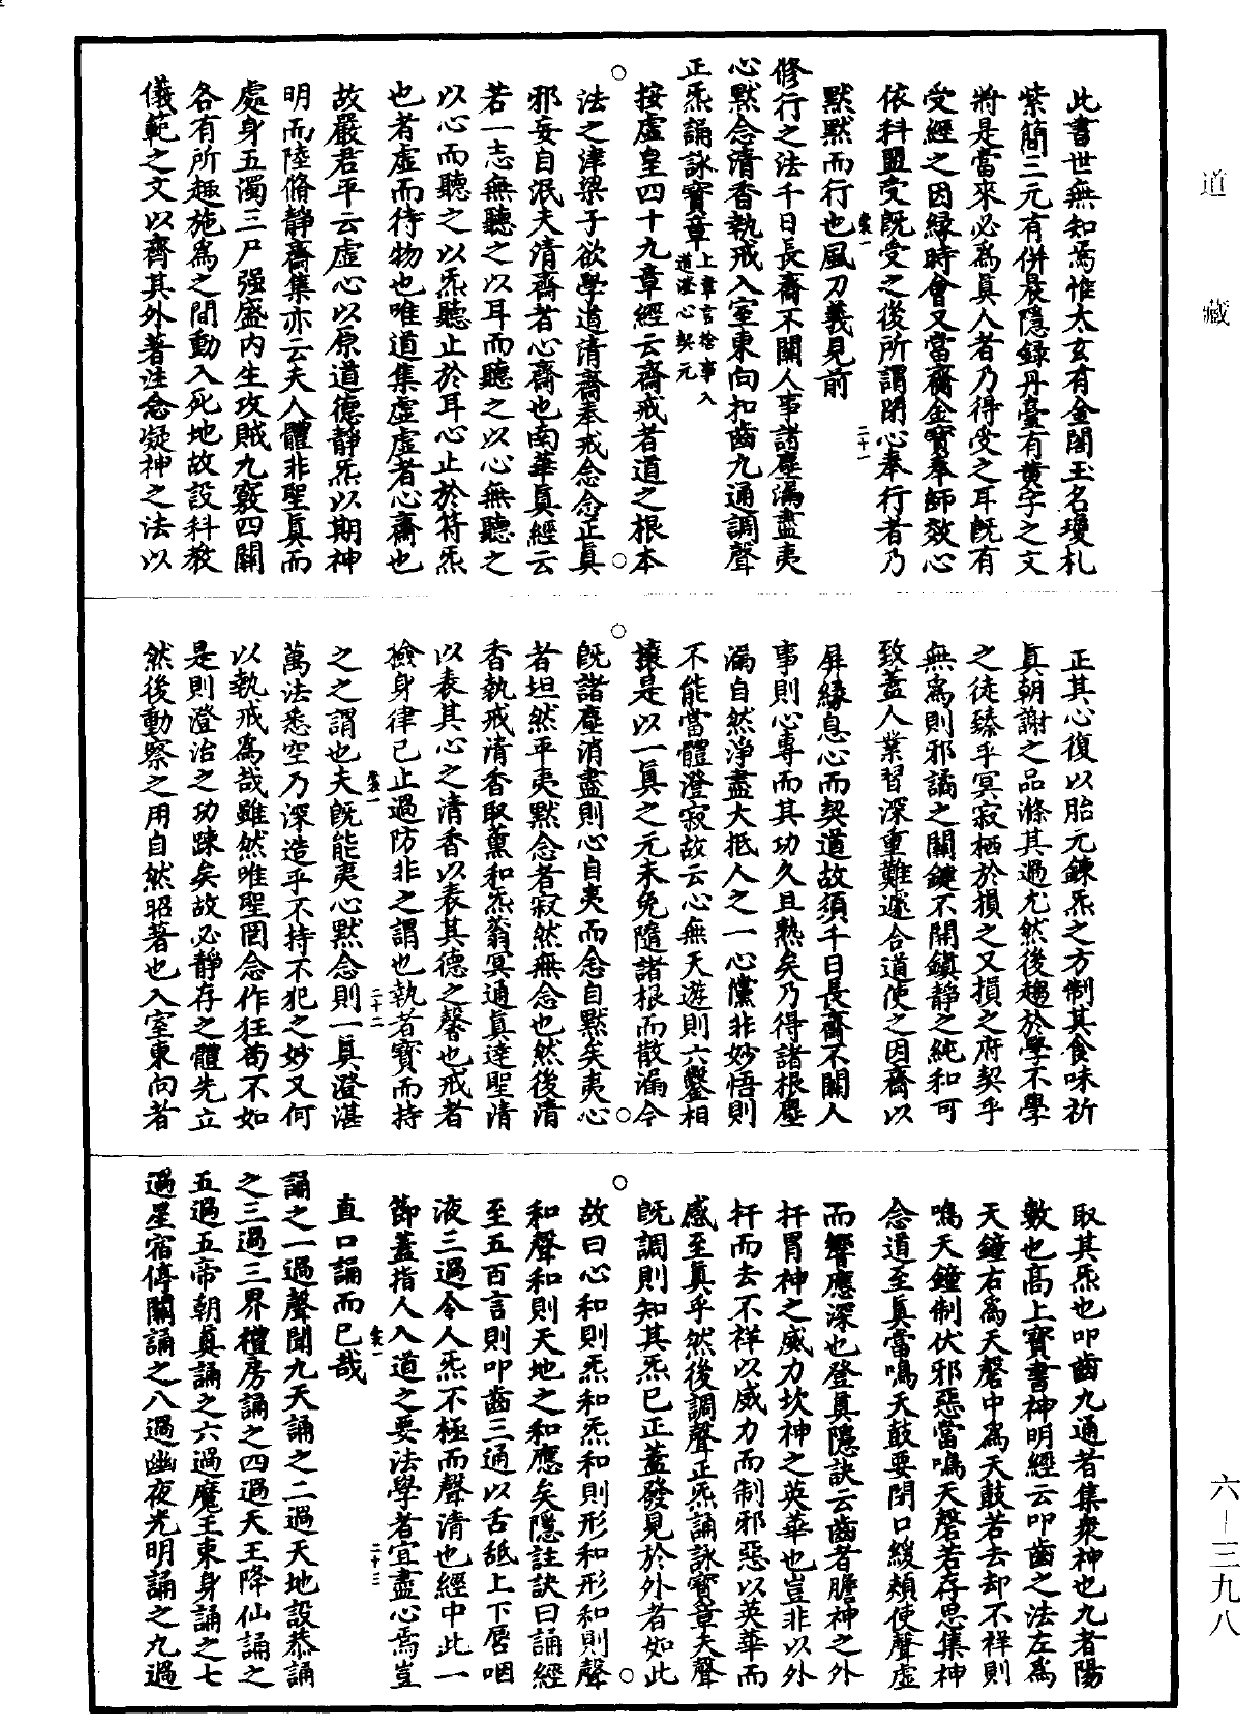 道藏
此書世無知焉惟太玄有金閣玉名瓊札
紫簡三元有併晨隱錄丹臺有黃字之文
將是當來必為真人者乃得受之耳既有
受經之因緣時會又當齎金寶奉師效心
依科盟受既受之後所謂閉心奉行者乃
默默而行也風刀義見前
修行之法千日長齋不關人事諸塵漏盡夷
心默念清香執戒入室東向扣齒九通調聲
正炁誦詠寶章上章言捨事入道澄心契元
按虛皇四十九章經云齋戒者道之根本
法之津梁子欲學道清齋奉戒念念正真
邪妄自泯夫清齋者心齋也南華真經云
若一志無聽之以耳而聽之以心無聽之
以心而聽之以炁聽止於耳心止於符炁
也者虛而待物也唯道集虛虛者心齋也
故嚴君平云虛心以原道德靜炁以期神
明而陸脩靜齋集亦云夫人體非聖真而
處身五濁三尸强盛內生攻賊九竅四關
各有所趣施為之間動入死地故設科教
儀範之文以齊其外著注念凝神之法以
正其心復以胎元鍊炁之方制其食味祈
真朝謝之品滌其過尤然後趨於學不學
之徒臻乎冥寂栖於損之又損之府契乎
無為則邪譎之關鍵不開鎮靜之純和可
致蓋人業習深重難遽合道使之因齋以
屏緣息心而契道故須千日長齋不關人
事則心專而其功久且熟矣乃得諸根塵
漏自然淨盡大抵人之一心儻非妙悟則
不能當體澄寂故云心無天遊則六鑿相
攘是以一真之元未免隨諸根而散漏今
既諸塵消盡則心自夷而念自默矣夷心
者坦然平夷默念者寂然無念也然後清
香執戒清香取薰和炁蓊冥通真達聖清
以表其心之清香以表其德之馨也戒者
檢身律已止過防非之謂也執者寶而持
之之謂也夫既能夷心默念則一真澄湛
萬法悉空乃深造乎不持不犯之妙又何
以執戒為哉雖然唯聖罔念作狂苟不如
是則澄治之功踈矣故必靜存之體先立
然後動察之用自然昭著也入室東向者
取其炁也叩齒九通者集眾神也九者陽
數也高上寶書神明經云叩齒之法左為
天鐘右為天磬中為天鼓若去却不祥則
鳴天鐘制伏邪惡當鳴天磬若存思集神
念道至真當鳴天鼓要閉口緩頰使聲虛
而響應深也登真隱訣云齒者膽神之外
扞胃神之威力坎神之英華也豈非以外
扞而去不祥以威力而制邪惡以英華而
感至真乎然後調聲正炁誦詠寶章夫聲
既調則知其炁已正蓋發見於外者如此
故曰心和則炁和炁和則形和形和則聲
和聲和則天地之和應矣隱註訣曰誦經
至五百言則叩齒三通以舌舐上下唇咽
液三過令人炁不極而聲清也經中此一
節蓋指人入道之要法學者宜盡心焉豈
直口誦而已哉
誦之一過聲聞九天誦之二過天地設恭誦
之三過三界禮房誦之四過天王降仙誦之
五過五帝朝真誦之六過魔王束身誦之七
過星宿停關誦之八過幽夜光明誦之九過
六－三九八